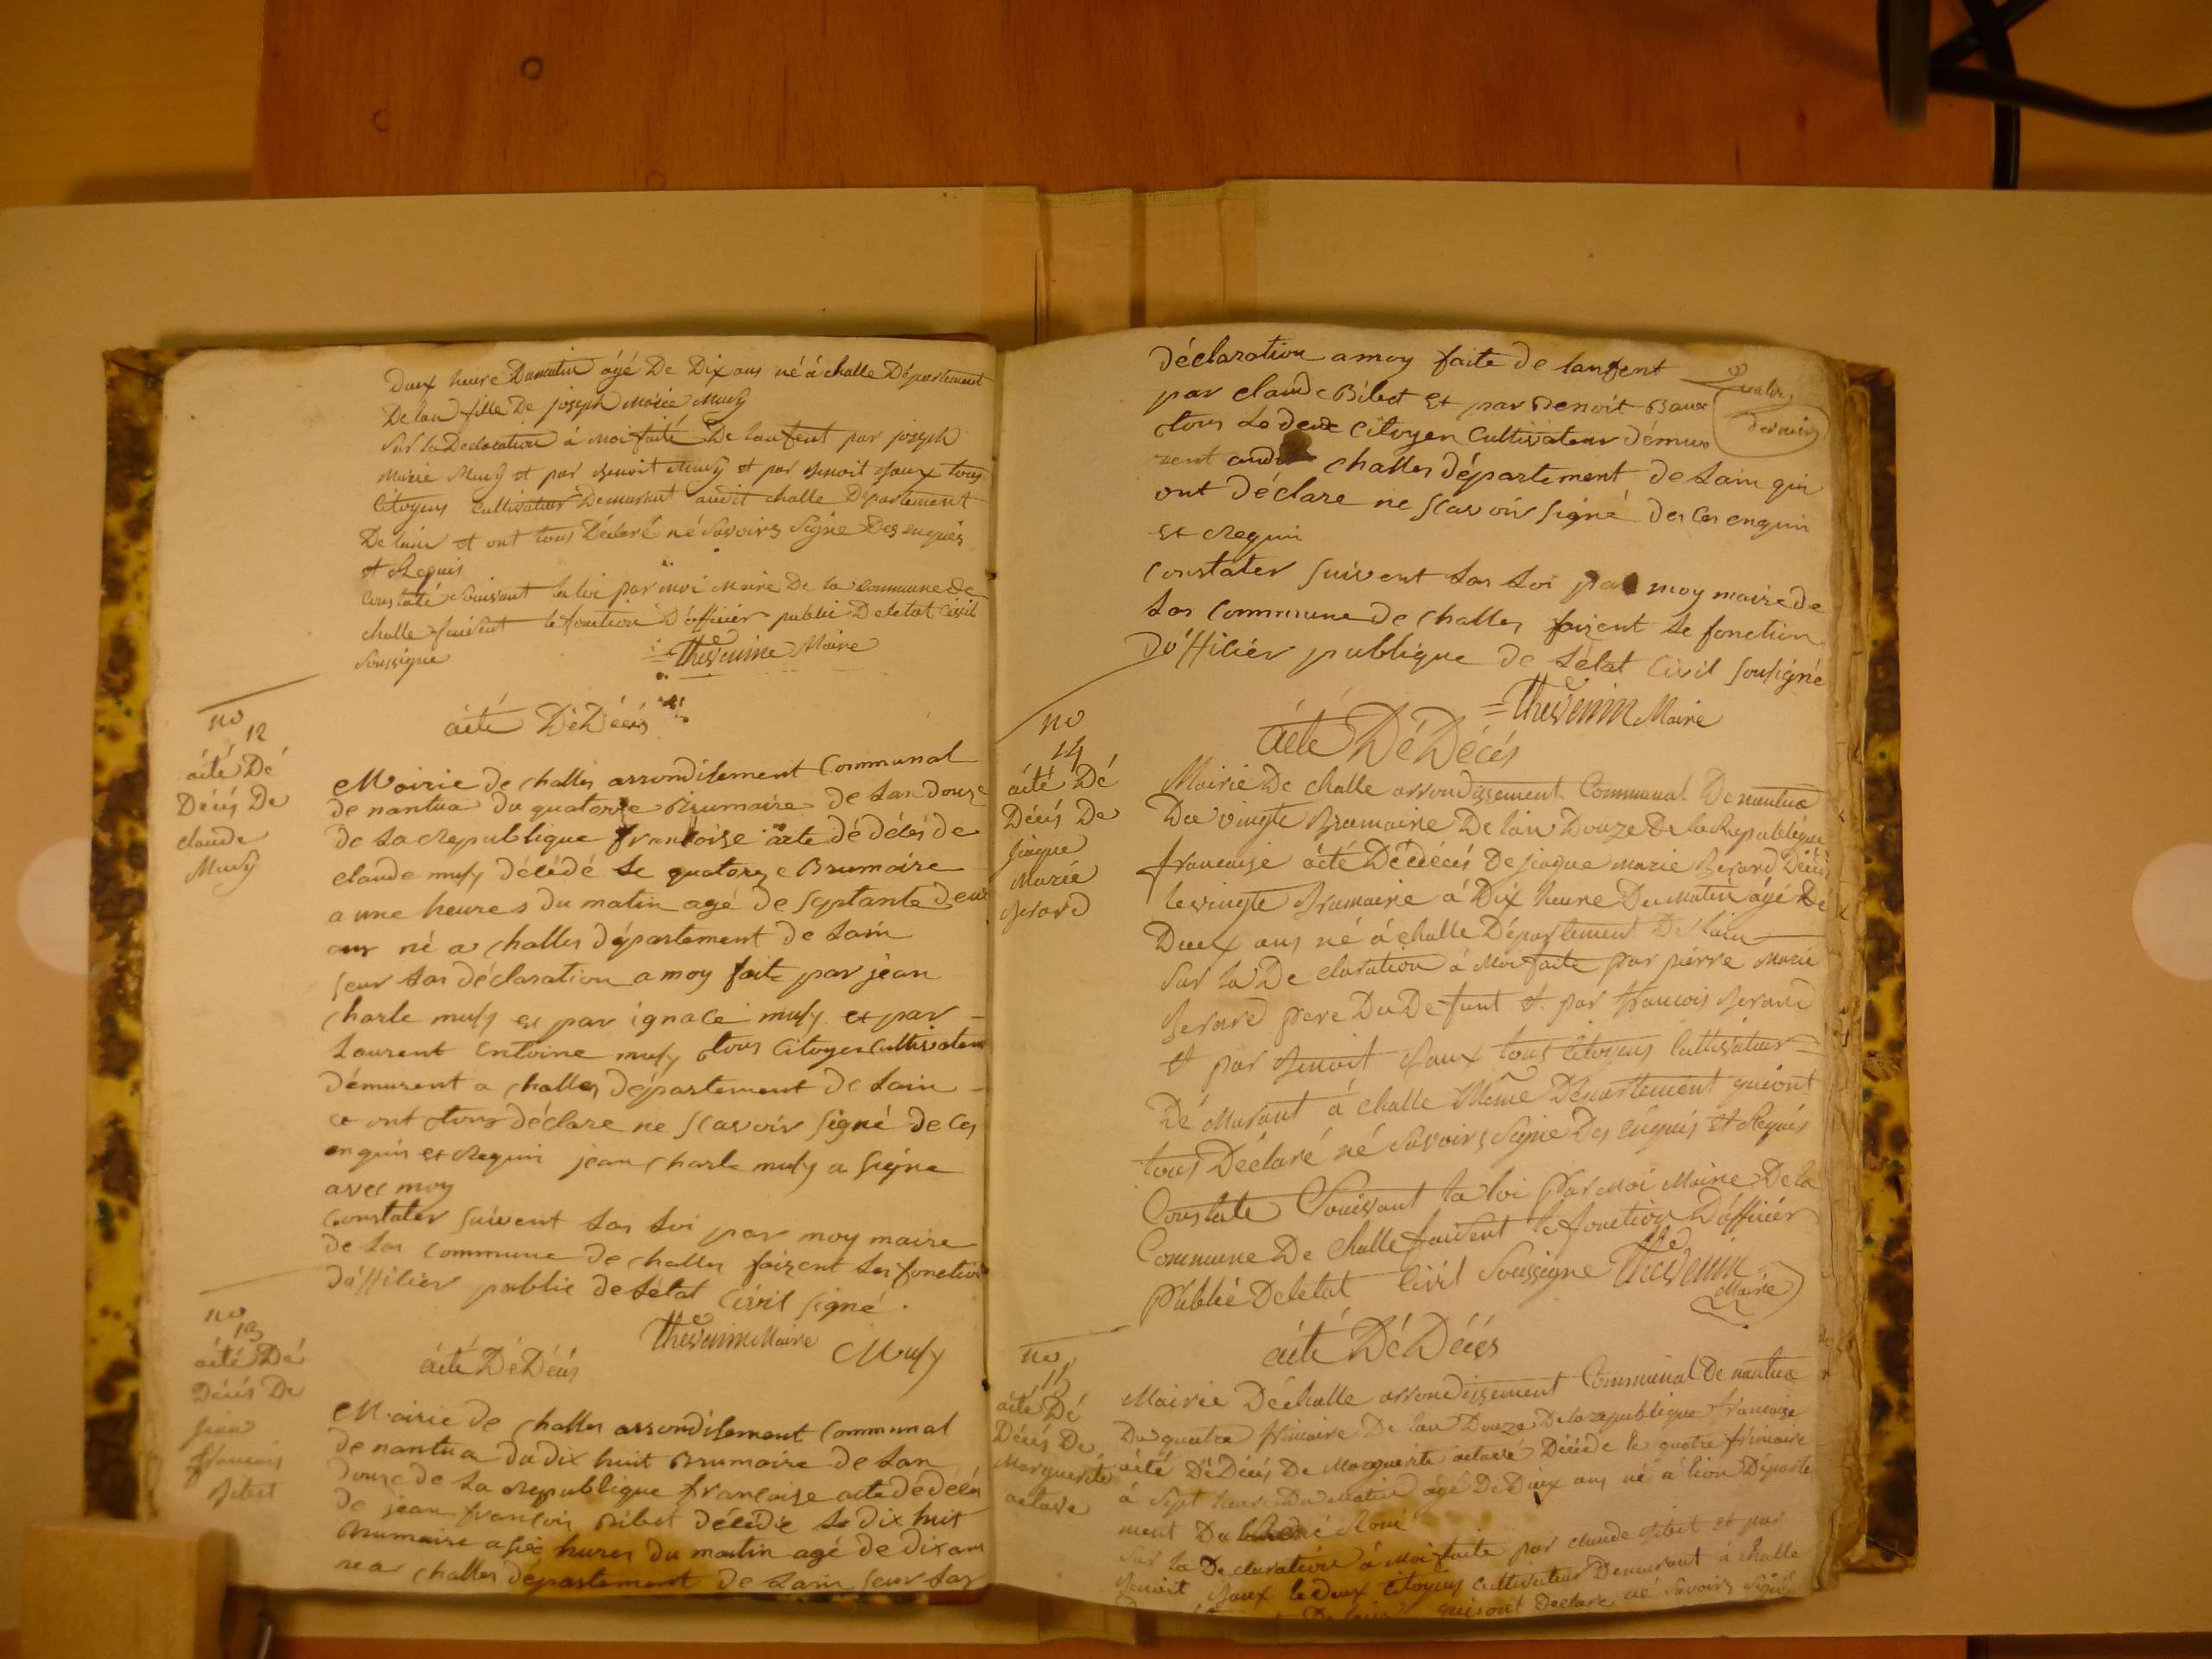 Deux heure Dumatin âgé De Dix ans né á challe Département
De lain fille De joseph Marie Musy
Sur La Declaration á Moi faite De lanfent par joseph
Marie Musy et par Benoit Musy et par Benoit Baux tous
Citoyens Cultivateur Demurant audit challe Departement
De lain et ont tous Déclaré né Savoirs Signe Des enquis
et Requis
Constaté Souivant la loi par moi Maire De la Commune de
challe faisent le fonction D'éfficiér public De letat Civil
Soussigne
Thevenin Maire
no
12
áité Dé
Décés De
claude
Musy
áité Dé Décés
Mairie de challes arrondisement Communal
de nantua du quatorze Brumaire de Lan douze
de La Republique francoise acte dé décés de
claude musy décédé Le quatorze Brumaire
a une heures du matin agé de septante deux
ans né a challes département de Lain
seur Las déclaration a moy faite par jean
charle musy et par ignace musy et par
Laurent Entoine musy tous Citoyen Cultivateur
démurent a challes département de Lain
ce ont tous déclare ne scavoir signé de Ces
enquis et Requis jean charle musy a signe
avec moy
Constater suivent Las Loi par moy maire
de Las Commune de challes faizent Les fonction
d'officier public de L'état Civil signé
Thevenin Maire Musy
no
13
áité Dé
Décés De
jean
francois
Bibet
áité Dé Décés
Mairie de challes arrondisement Communal
de nantua du dix huit Brumaire de Lan
douze de La Republique francaise acte dé décés
de jean francois Bibet décédé Le dix huit
Brumaire a six hures du matin agé de dix ans
ne a challes département de Lain seur Las
déclaration a moy faite de lanfent
par claude Bibet et par Benoit Baux
tous Le deux Citoyen Cultivateur démus
rent audit challes département de Lain qui
ont déclare ne scavoir signé des Ces enquis
et Requis
Constater suivent Las Loi par moy maire de
Las Commune de challes faizent Le fonction
D'officiér publique de L'état Civil sousigné
Thevenin Maire
dernier
no
14
áité Dé
Décés De
jaque
Marié
Berard
áété Dé Décés
Mairié De challe arrondissement Communal De nantua
Du vingte Brumaire De lan Douze De la Republique
francaise áité Dé décés De jaque Marie Berard Décédé
le vingte Brumaire á Dix heure Du Matin âgé De
Deux ans né á challe Département De lain
Sur La Declaration á Moi faite par piérre Marié
Berard pere Du Defunt et par francois Berard
et par Benoit Baux tous Citoyens Cultivateur
Dé Murant á challe Même Département qui ont
tous Déclaré né Savoirs Signe Des enquis et Requis
Constate Souivant la loi Par Moi Maire De la
Commune De challe faisent le fonction D'éfficiér
Publié De letat Civil Soussigne Thevenin
Maire
no
15
áité Dé
Décés De
Marguerite
octave
áité Dé Décés
Mairie Dé challe arrondissement Communal De nantua
Du quatre frimaire De lan Douze De la republique francaise
áité Dé Décés De Marguerite octave Décéde le quatre frimaire
á Sept heure Du Matin âgé De Deux ans né á lion Departe
ment Du Roné
Sur la Declaration á Moi faite par claude Bibet et par
Benoit Baux le Deux Citoyens Cultivateur Demurant á challe
De lain qui ont Declare né Savoirs Signe